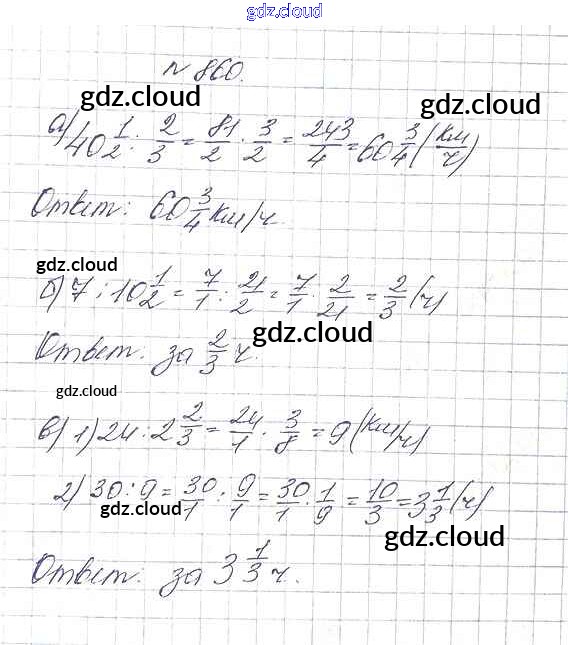 gdz.cloud
№ 860.
gdz.cloud gdz.cloud
а) 40 1/2 : 2/3 = 81/2 · 3/2 = 243/4 = 60 3/4 (км/ч)
Ответ: 60 3/4 км/ч.
gdz.cloud
б) 7 : 10 1/2 = 7/1 : 21/2 = 7/1 · 2/21 = 2/3 (ч)
gdz.cloud
Ответ: за 2/3 ч.
gdz.cloud
в) 1) 24 : 2 2/3 = 24/1 · 3/8 = 9 (км/ч)
2) 30 : 9 = 30/1 : 9/1 = 30/1 · 1/9 = 10/3 = 3 1/3 (ч)
gdz.cloud gdz.cloud
Ответ: за 3 1/3 ч.